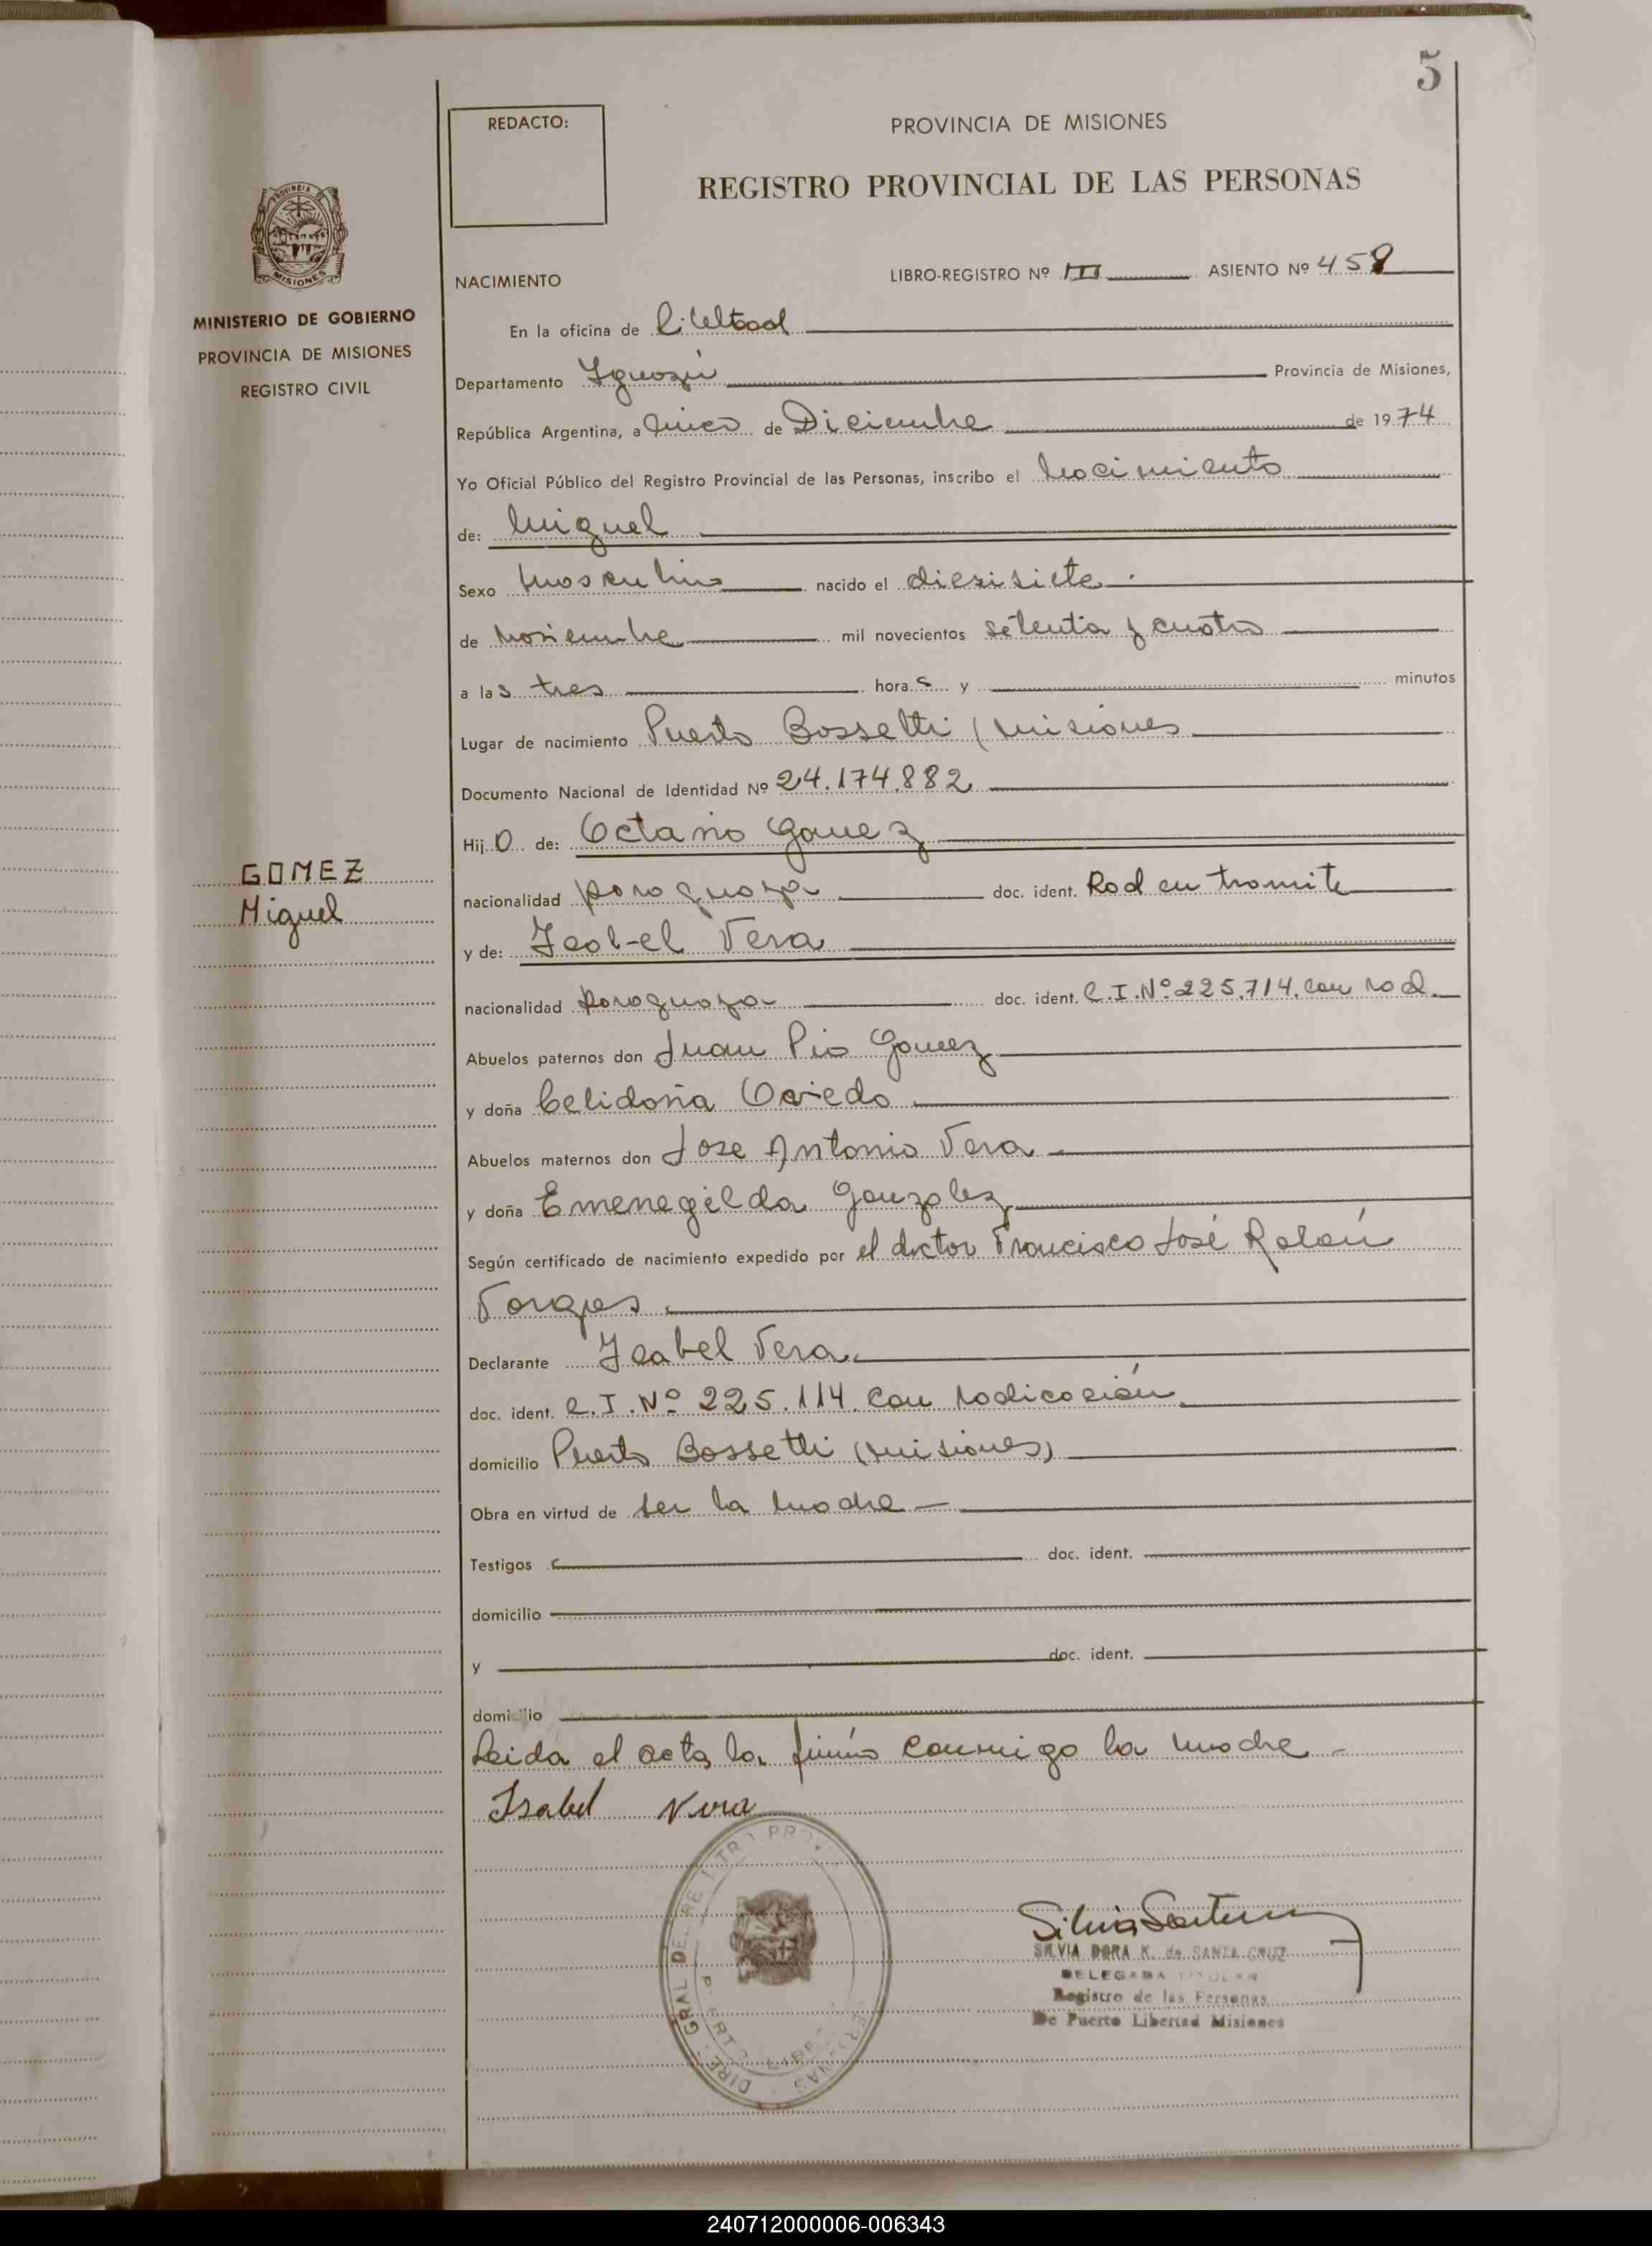 5
REDACTO:
PROVINCIA DE MISIONES
REGISTRO PROVINCIAL DE LAS PERSONAS
NACIMIENTO
LIBRO-REGISTRO Nº III ASIENTO Nº 458
MINISTERIO DE GOBIERNO
PROVINCIA DE MISIONES
REGISTRO CIVIL
En la oficina de
Departamento Iguazú Provincia de Misiones,
República Argentina, a cinco de Diciembre de 1974
Yo Oficial Público del Registro Provincial de las Personas, inscribo el Nacimiento
de: Miguel
Sexo masculino nacido el diezisiete
de Noviembre mil novecientos setenta y cuatro
a las tres horas y minutos
Lugar de nacimiento Puerto Bossetti (Misiones
Documento Nacional de Identidad Nº 24.174.882
Hijo de: Octavio Gomez
GOMEZ
Miguel
nacionalidad paraguaya doc. ident. Rad en tramite
y de: Isabel Vera
nacionalidad paraguaya doc. ident. C.I.Nº 225.714. con rad.
Abuelos paternos don Juan Pio Gomez
y doña Celidonia Oviedo
Abuelos maternos don Jose Antonio Vera
y doña Emenegilda Gonzalez
Según certificado de nacimiento expedido por el doctor Francisco José Rolón
Declarante Isabel Vera.
doc. ident. C.I.Nº 225.114. con radicación
domicilio Puerto Bossetti (Misiones)
Obra en virtud de ser la madre
Testigos doc. ident.
domicilio
y doc. ident.
domicilio
Leida el acta, la firmó conmigo la madre
Isabel Vera
SILVIA DORA K. de SANTA CRUZ
DELEGADA TITULAR
Registro de las Personas
De Puerto Libertad Misiones
240712000006-006343